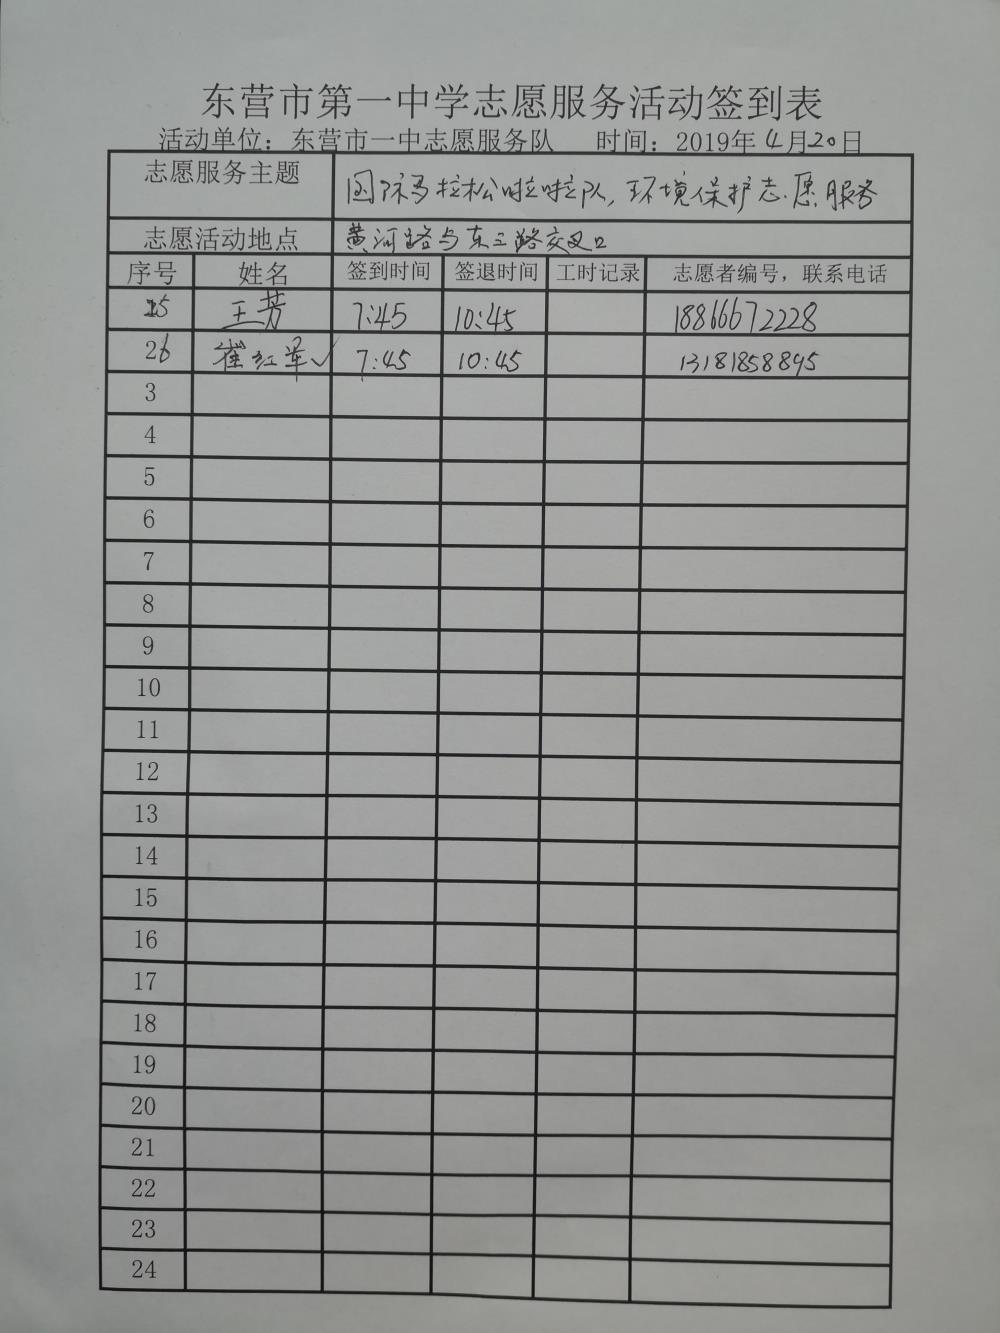 东营市第一中学志愿服务活动签到表
活动单位：东营市一中志愿服务队 时间：2019年4月20日
志愿服务主题 国际马拉松啦啦队，环境保护志愿服务
志愿活动地点 黄河路与东三路交叉口
序号 姓名 签到时间 签退时间 工时记录 志愿者编号，联系电话
25 王芳 7:45 10:45 18866672228
26 崔红军✓ 7:45 10:45 13181858895
3
4
5
6
7
8
9
10
11
12
13
14
15
16
17
18
19
20
21
22
23
24